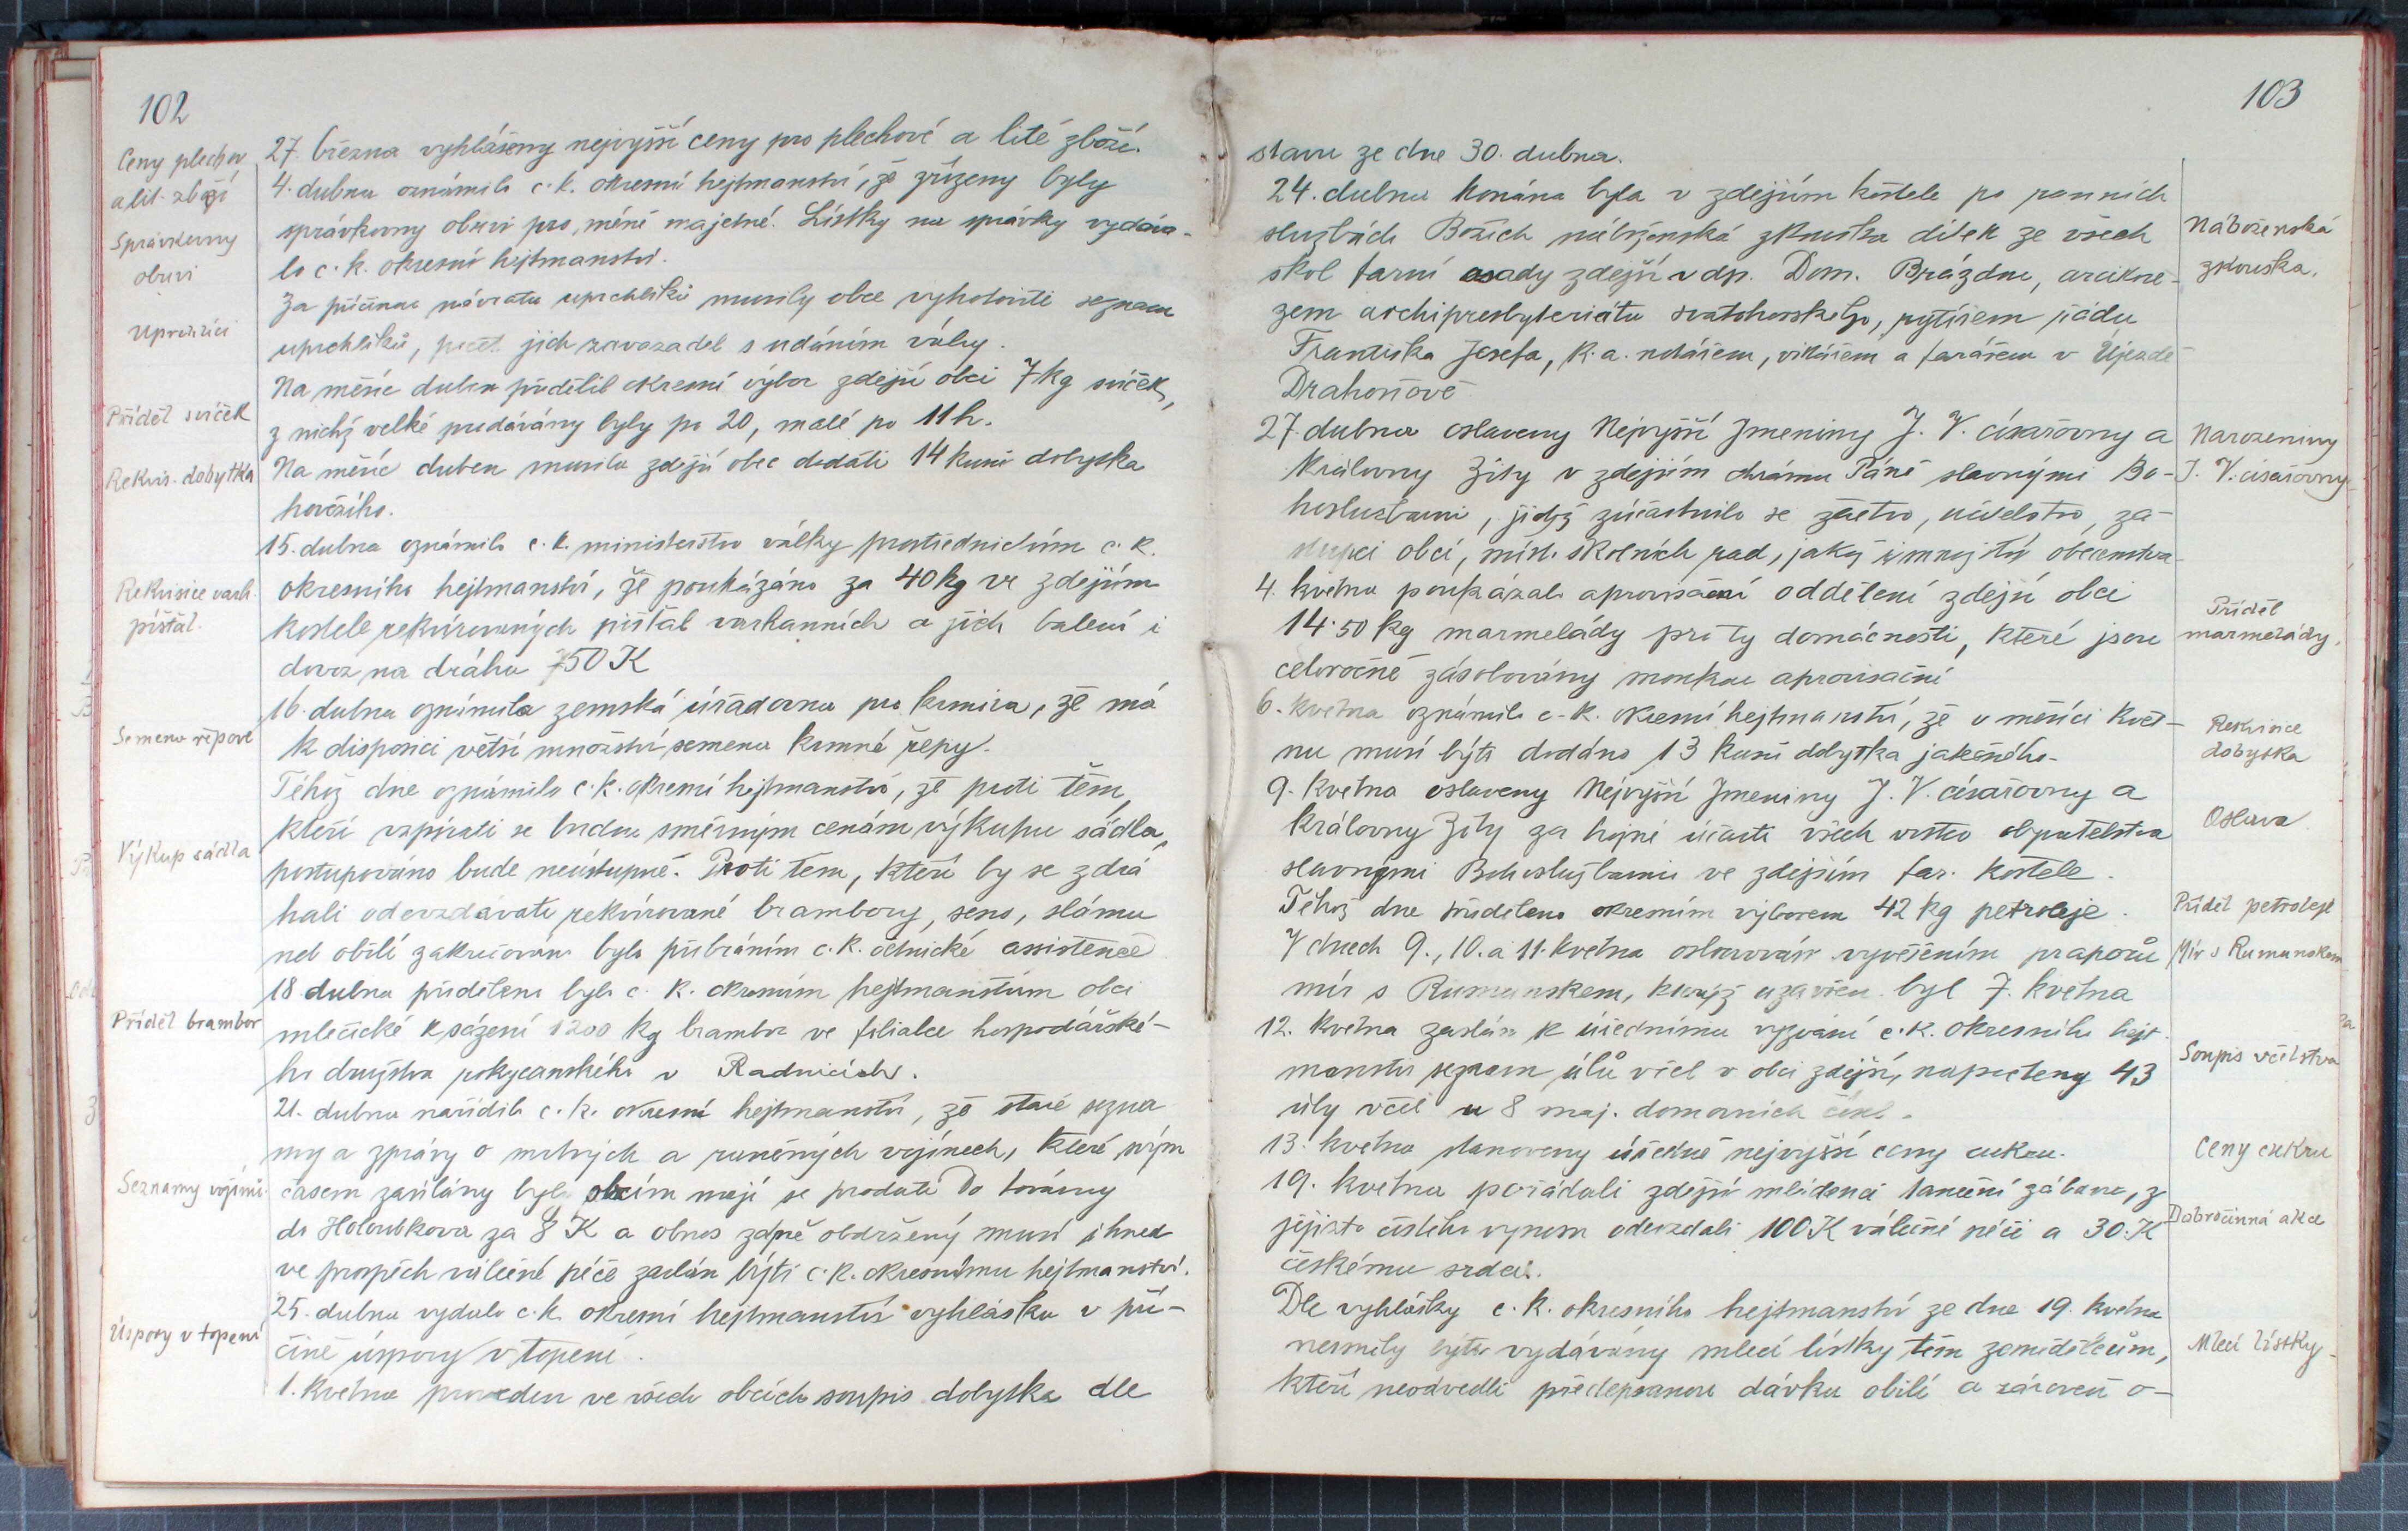 102
Ceny plechov.
a lit. zboží
Správkovny
obuvi
Uprchlíci
Příděl svíček
Rekvis. dobytka
Rekvisice varh.
píšťal.
Semeno řepové
Výkup sádla
Příděl brambor
Seznamy vojínů.
Úspory v topení
27. března vyhlášeny nejvyšší ceny pro plechové a lité zboží.
4. dubna oznámilo c. k. okresní hejtmanství, že zřízeny byly
správkovny obuvi pro méně majetné. Lístky na správky vydáva-
lo c. k. okresní hejtmanství.
Za příčinou návratu uprchlíků musily obce vyhotoviti seznam
uprchlíků, počet jich zavazadel s udáním váhy.
Na měsíc duben přidělil okresní výbor zdejší obci 7 kg svíček,
z nichž velké prodávány byly po 20, malé po 11 h.
Na měsíc duben musila zdejší obec dodati 14 kusů dobytka
hovězího.
15. dubna oznámilo c. k. ministerstvo války prostřednictvím c. k.
okresního hejtmanství, že poukázáno za 40 kg ve zdejším
kostele rekvirovaných píšťal varhanních a jich balení i
dovoz na dráhu 750 K
16. dubna oznámila zemská úřadovna pro krmiva, že má
k disposici větší množství semena krmné řepy.
Téhož dne oznámilo c. k. okresní hejtmanství, že proti těm,
kteří vzpírati se budou směrným cenám výkupu sádla,
postupováno bude neústupně. Proti těm, kteří by se zdrá
hali odevzdávati rekvírované brambory, seno, slámu
neb obilí zakročováno bylo přibráním c. k. četnické assistence
18 dubna přiděleno bylo c. k. okresním hejtmanstvím obci
mlečické k sázení 1200 kg brambor ve filialce hospodářské-
ho družstva rokycanského v Radnicích.
21. dubna nařídilo c. k. okresní hejtmanství, že staré sezna
my a zprávy o mrtvých a raněných vojínech, které svým
časem zasílány byly obcím mají se prodati do továrny
do Holoubkova za 8 K a obnos zdně obdržený musí ihned
ve prospěch válečné péče zaslán býti c. k. okresnímu hejtmanství.
25. dubna vydalo c. k. okresní hejtmanství vyhlášku v pří-
čině úspory v topení.
1. května proveden ve všech obcích soupis dobytka dle
103
stavu ze dne 30. dubna.
24. dubna konána byla v zdejším kostele po ranních
službách Božích náboženská zkouška dítek ze všech
škol farní osady zdejší vdp. Dom. Brázdou, arcikně-
zem archipresbyteriátu svatohorského, rytířem řádu
Františka Josefa, k. a. notářem, vikářem a farářem v Újezdě
Drahoňově
27. dubna oslaveny Nejvyšší Jmeniny J. V. císařovny a
královny Zity v zdejším chrámu Páně slavnými Bo-
hoslužbami, jichž zúčastnilo se žactvo, učitelstvo, zá-
stupci obcí, míst. školních rad, jakož i mnozí též občanstva.
4. května poukázalo aprovisační oddělení zdejší obci
14·50 kg marmelády pro ty domácnosti, které jsou
celoročně zásobovány moukou aprovisační
6. května oznámilo c. k. okresní hejtmanství, že v měsíci květ-
nu musí býti dodáno 13 kusů dobytka jatečného.
9. května oslaveny Nejvyšší Jmeniny J. V. císařovny a
královny Zity za hojné účasti všech vrstev obyvatelstva
slavnými Bohoslužbami ve zdejším far. kostele.
Téhož dne přiděleno okresním výborem 42 kg petroleje.
V dnech 9., 10. a 11. května oslavován vyvěšením praporů
mír s Rumunskem, kterýž uzavřen byl 7. května
12. května zaslán k úřednímu vyzvání c. k. okresního hejt-
manství seznam úlů včel v obci zdejší, napočteny 43
úly včel u 8 maj. domovních čísel.
13. května stanoveny úředně nejvyšší ceny cukru.
19. května pořádali zdejší mládenci taneční zábavu, z
jejížto čistého výnosu odevzdali 100 K válečné péči a 30 K
českému srdci.
Dle vyhlášky c. k. okresního hejtmanství ze dne 19. května
nesměly býti vydávány mlecí lístky těm zemědělcům,
kteří neodvedli předepsanou dávku obilí a zároveň o-
Náboženská
zkouška.
Narozeniny
J. V. císařovny
Příděl
marmelády.
Rekvisice
dobytka
Oslava
Příděl petroleje
Mír s Rumunskem
Soupis včelstva
Ceny cukru
Dobročinná akce
Mlecí lístky